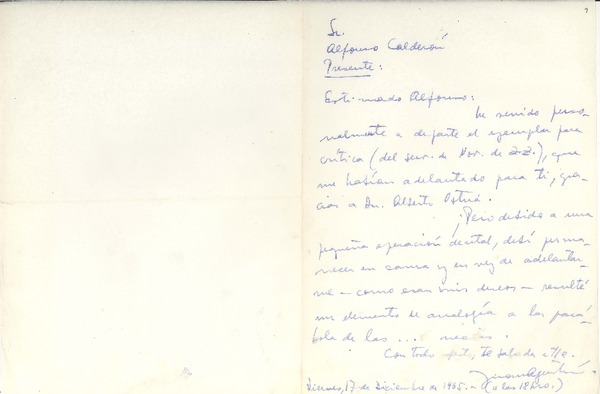 Sr.
Alfonso Calderón
Presente:
Estimado Alfonso:
He venido perso-
nalmente a dejarte el ejemplar para
crítica (del serv. de Nov. de Z.Z.), que
me habían adelantado para ti, gra-
cias a Dn. Alberto Ostria.
¡Pero debido a una
pequeña operación dental, debí perma-
necer en cama y en vez de adelantar-
me - como eran mis deseos - resulté
un elemento de analogía a la pará-
bola de las ...
Con todo, te saluda atte.
Viernes, 17 de Diciembre de 1965.- (a las 18 hrs.)